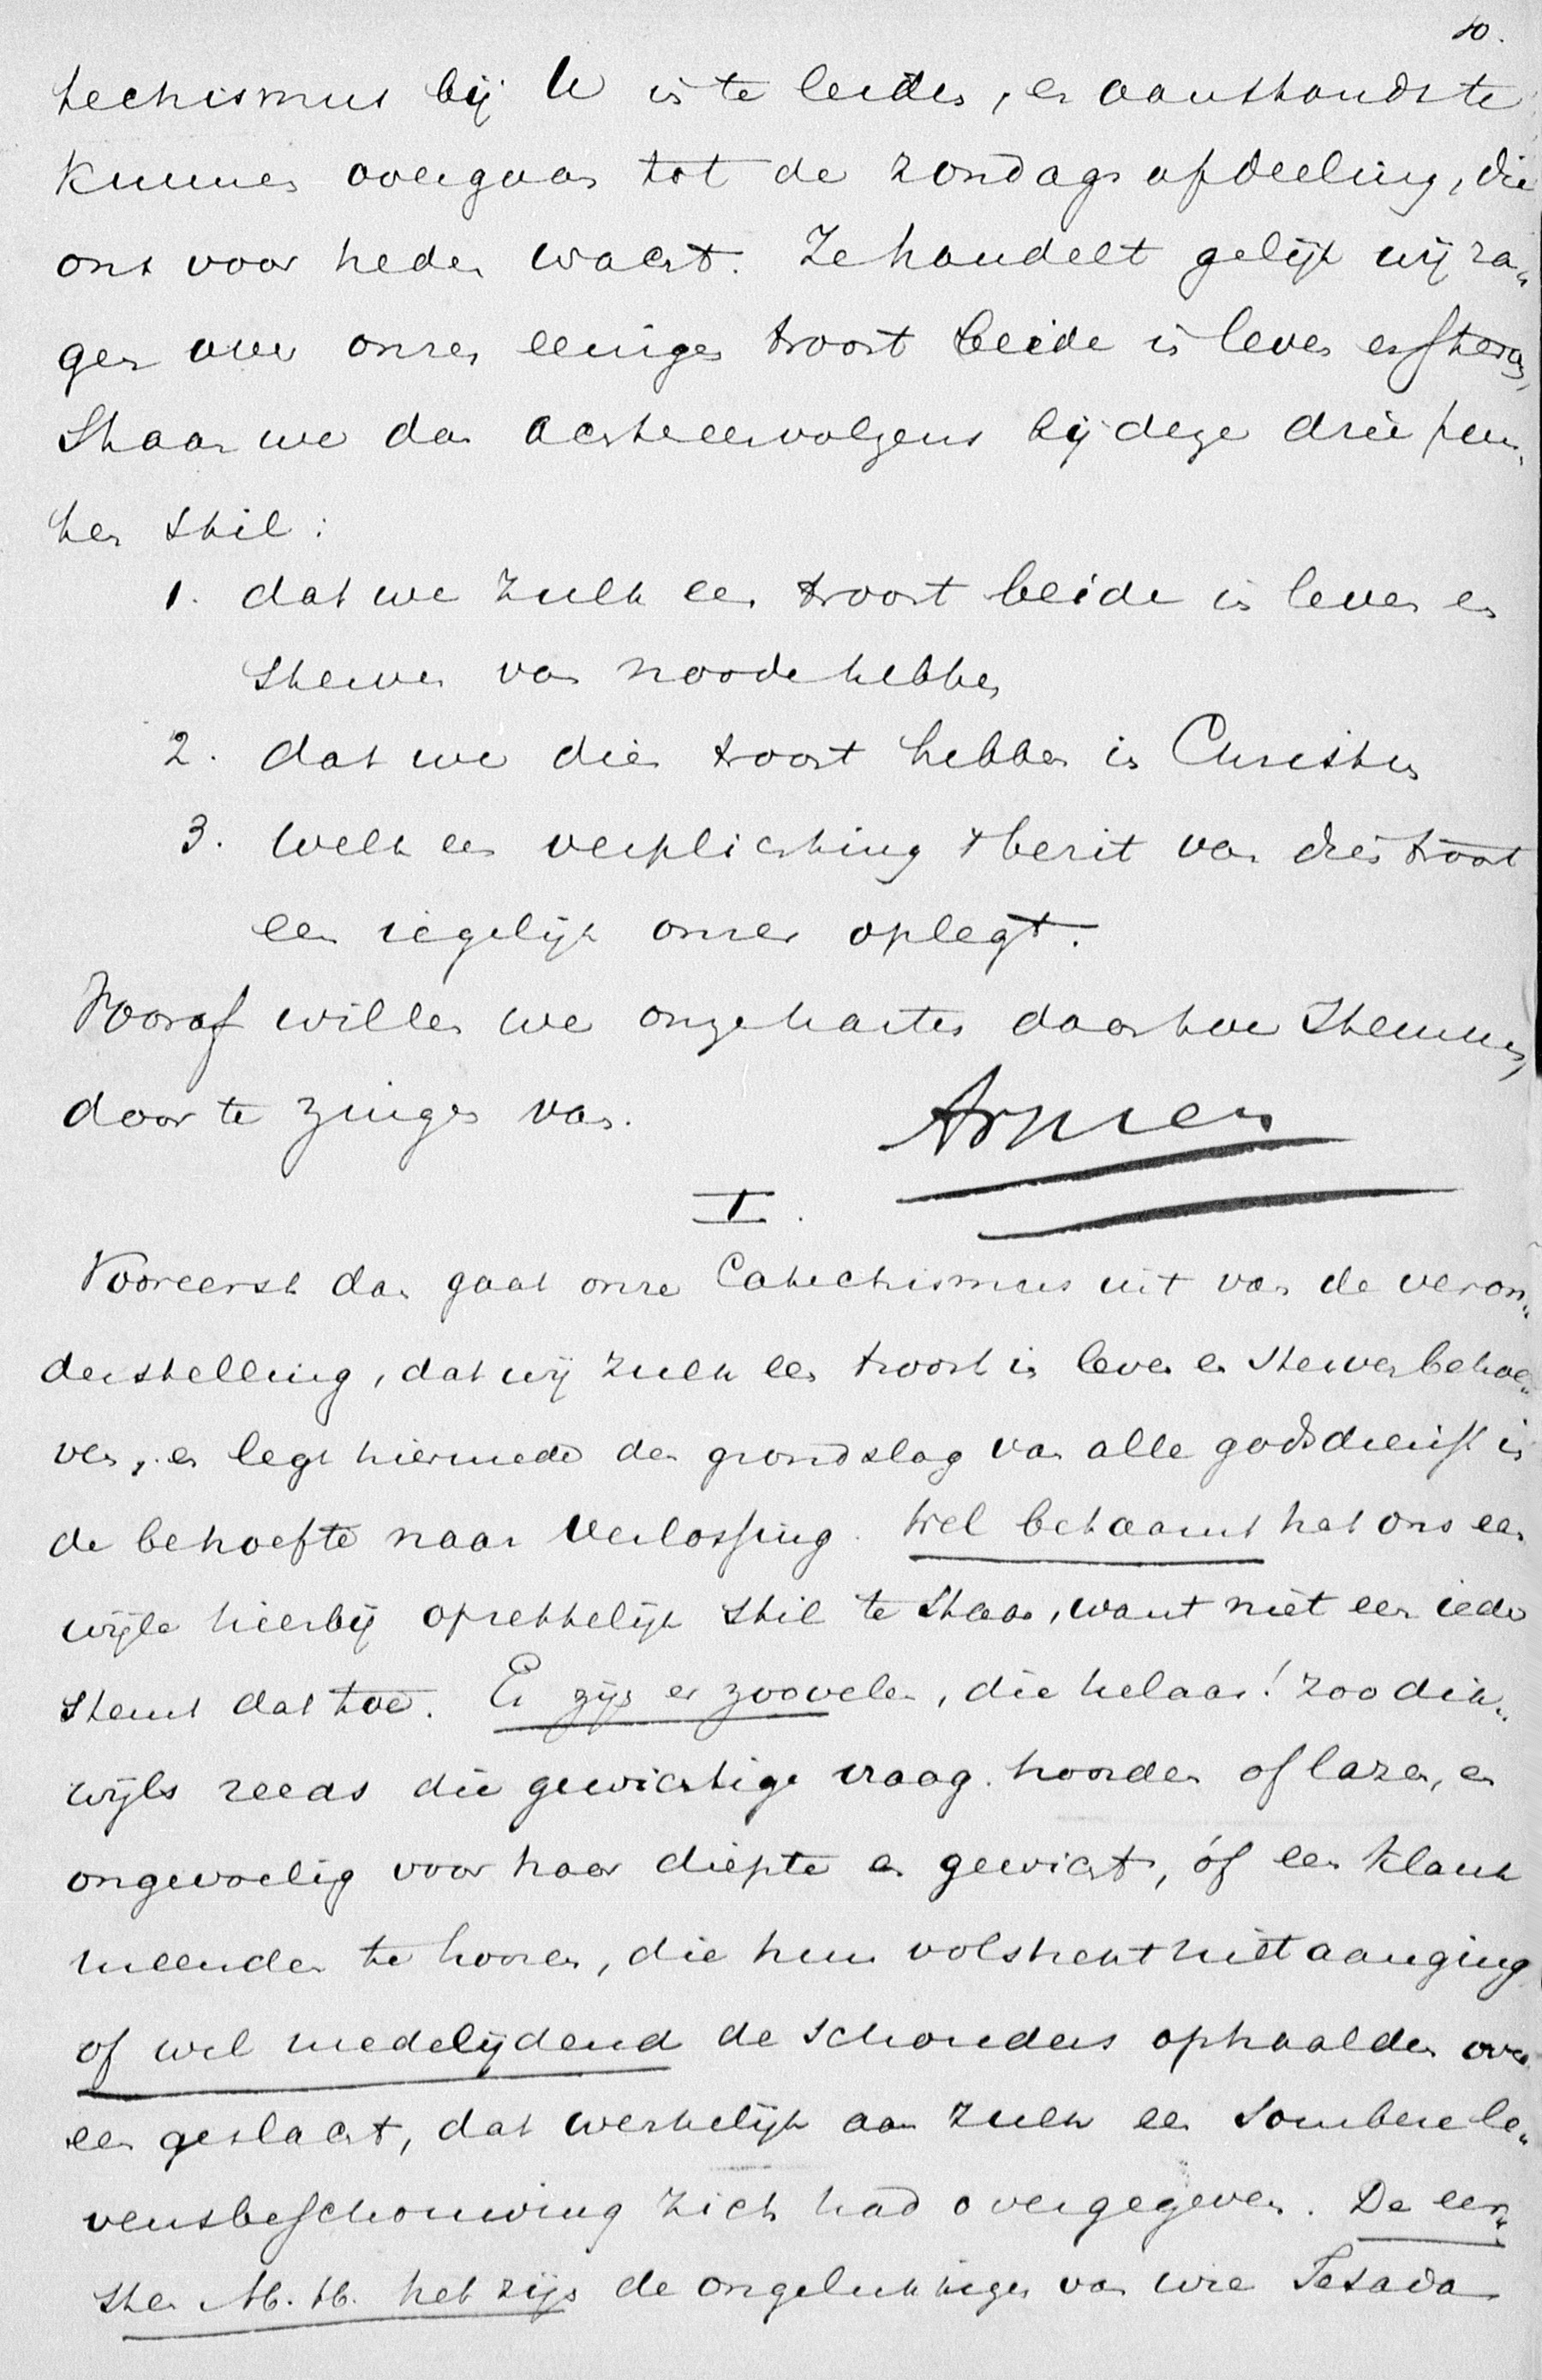 10.
techismus bij U in te leiden, en aanstonds te
kunnen overgaan tot de zondagsafdeeling, die
ons voor heden wacht. Ze handelt gelijk wij za„
gen over onzen eenigen troost beide in leven en sterven,
Staan we dan achtereenvolgens bij deze drie pun„
ten stil:
1. dat we zulk een troost beide in leven en
sterven van noode hebben
2. dat we dien troost hebben in Christus
3. welk een verplichting 't bezit van dien troost
een iegelijk onzer oplegt.
Vooraf willen we onze harten daartoe stemmen,
door te zingen van.
Amen
I.
Vooreerst dan gaat onze Catechismus uit van de veron„
derstelling, dat wij zulk een troost in leven en sterven behoe„
ven, en legt hiermede den grondslag van alle godsdienst in
de behoefte naar Verlossing. Wel betaamt het ons een
wijle hierbij opzettelijk stil te staan, want niet een ieder
stemt dat toe. Er zijn er zoovelen, die helaas! zoo dik„
wijls reeds die gewichtige vraag hoorden of lazen, en
ongevoelig voor haar diepte en gewicht, óf een klank
meenden te hooren, die hun volstrekt niet aanging
of wel medelijdend de schouders ophaalden over
een geslacht, dat werkelijk aan zulk een sombere le„
vensbeschouwing zich had overgegeven. De eer„
sten M. H. het zijn de ongelukkigen van wie Jesaja